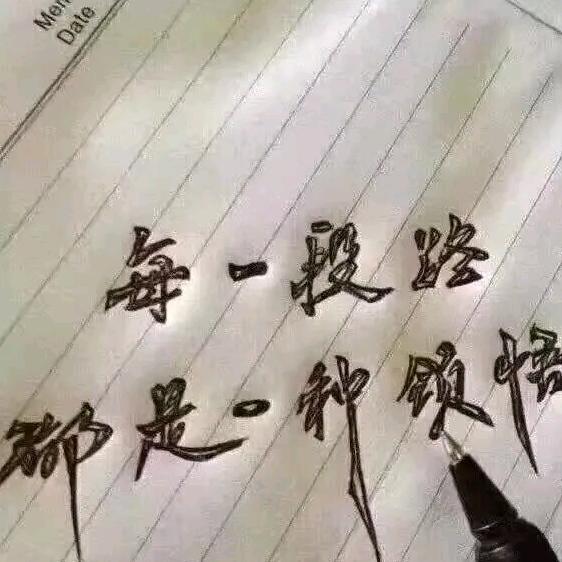 Mem
Date
每一段路
都是一种领悟